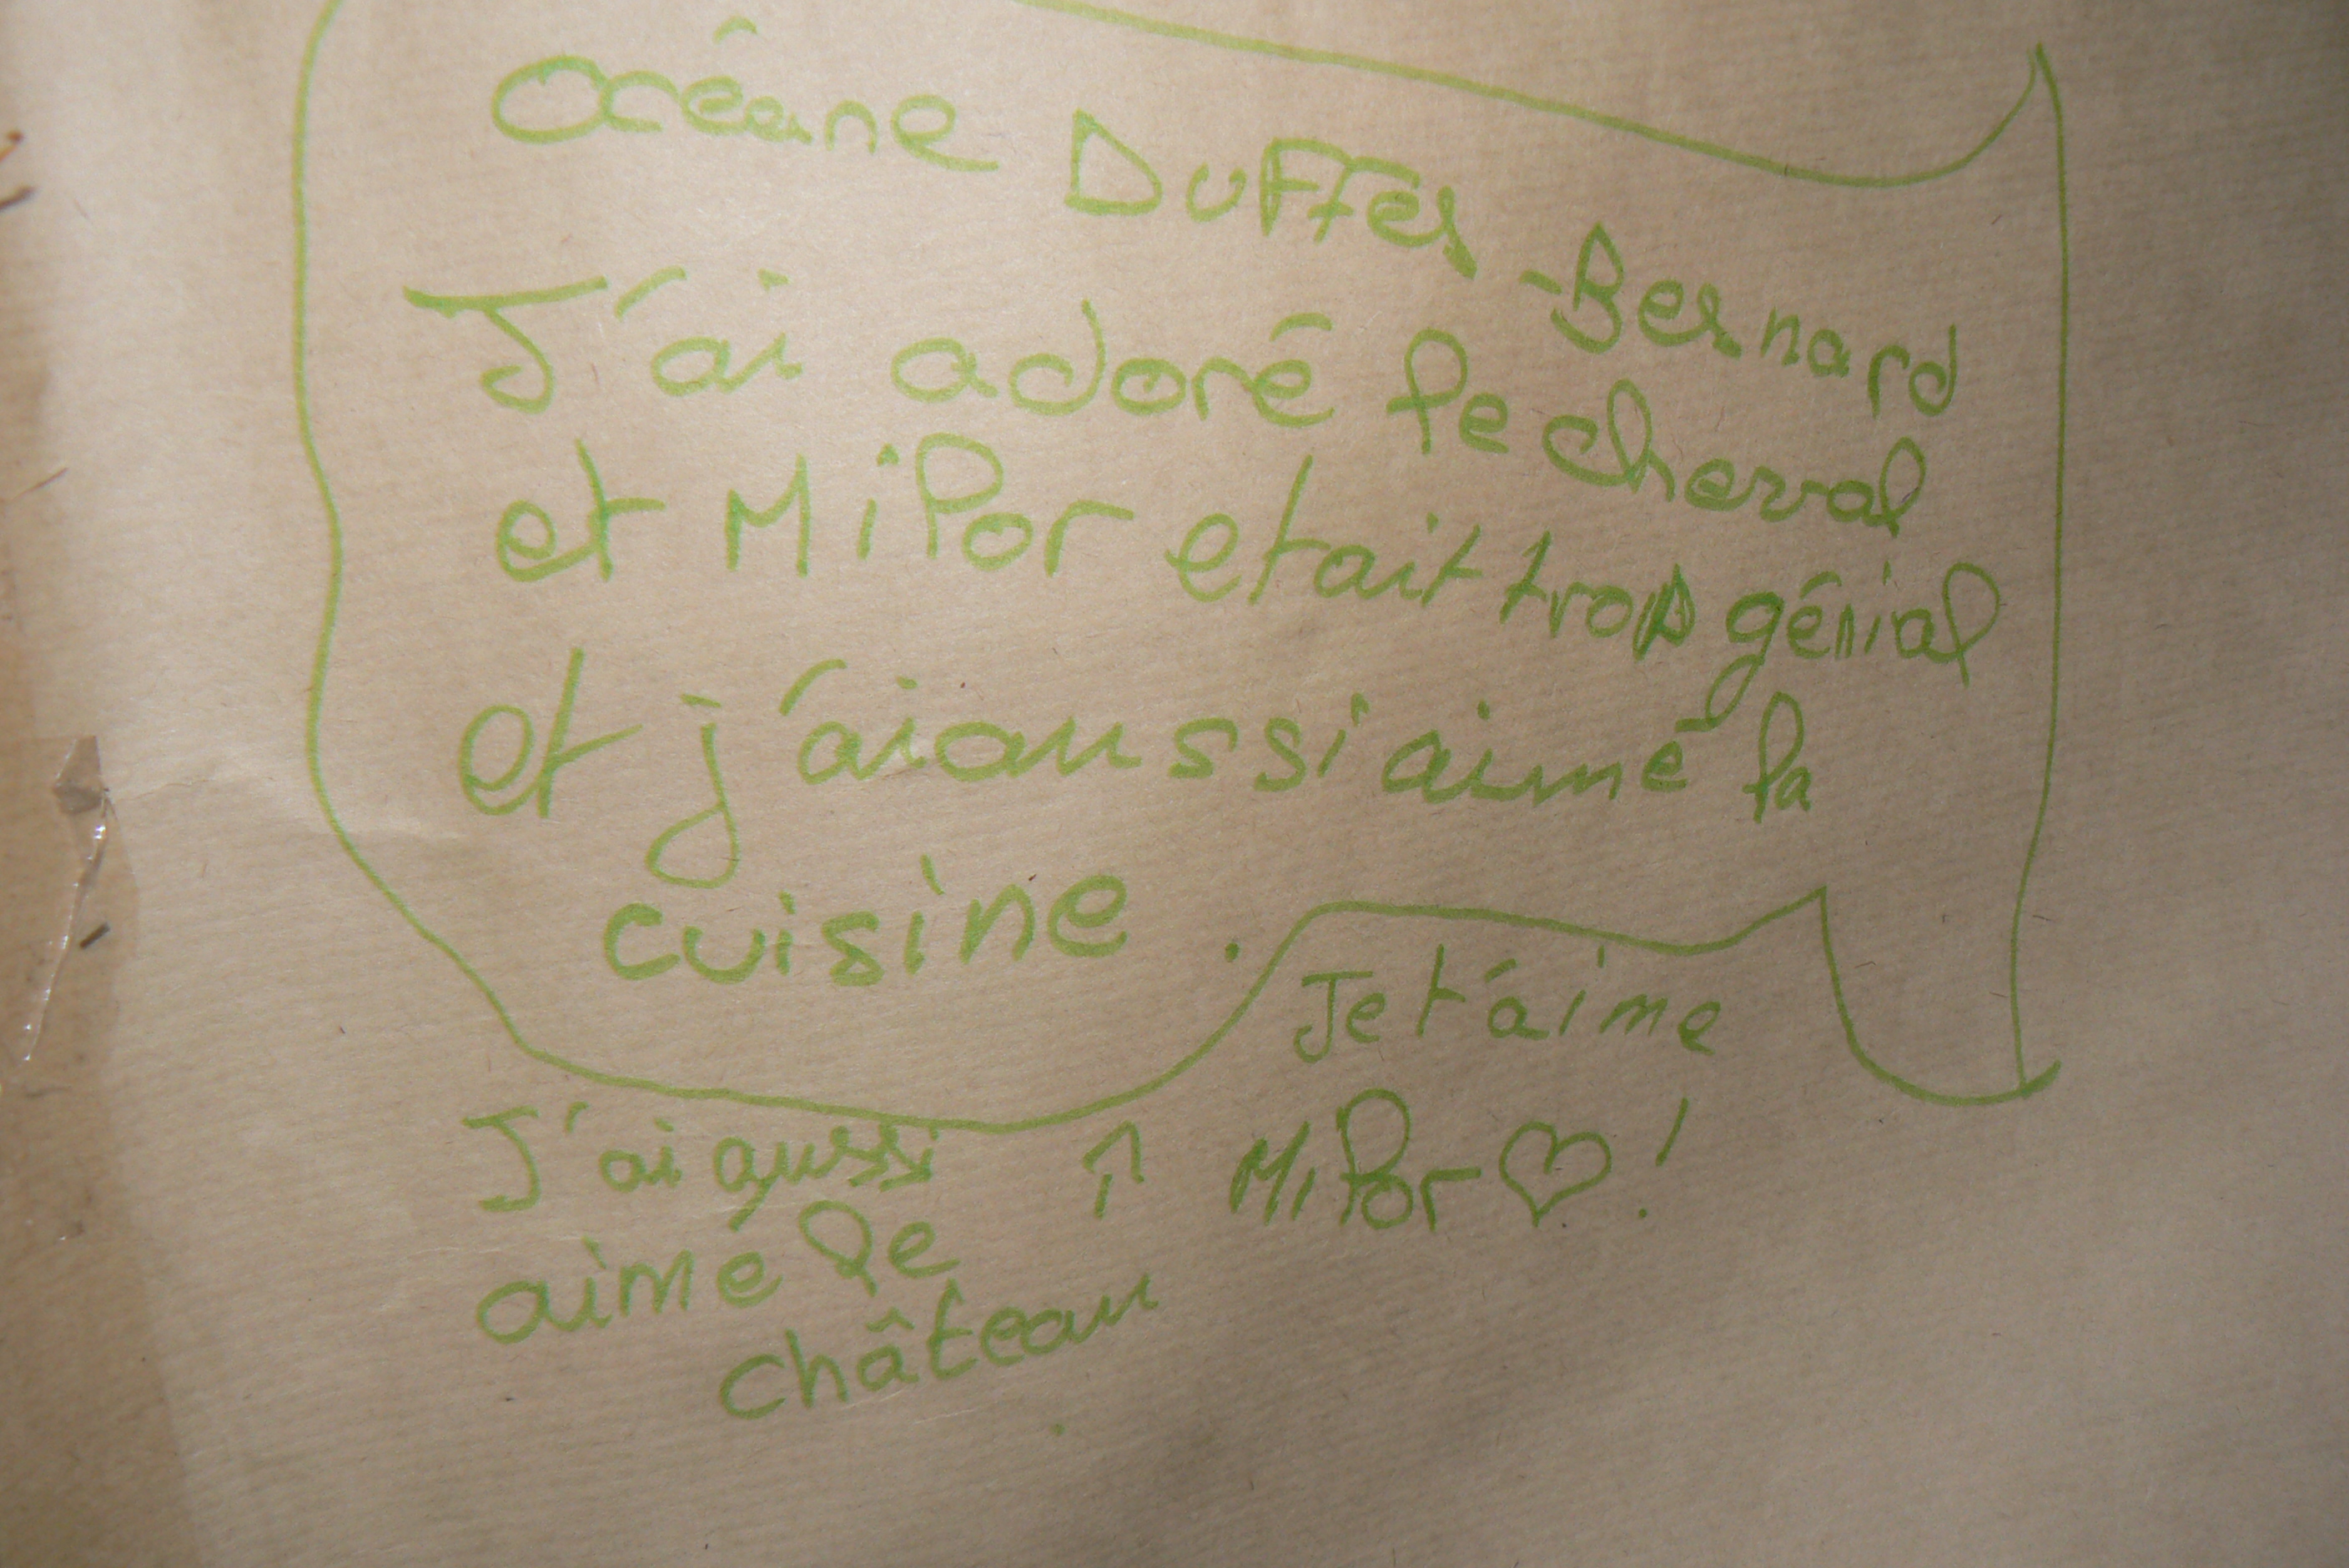 Océane Duffes-Bernard
J'ai adoré le cheval
et Milor etait trop génial
et j'ai aussi aimé la
cuisine.
Je t'aime
Milor ♡!
J'ai aussi ⇑
aimé le
château.